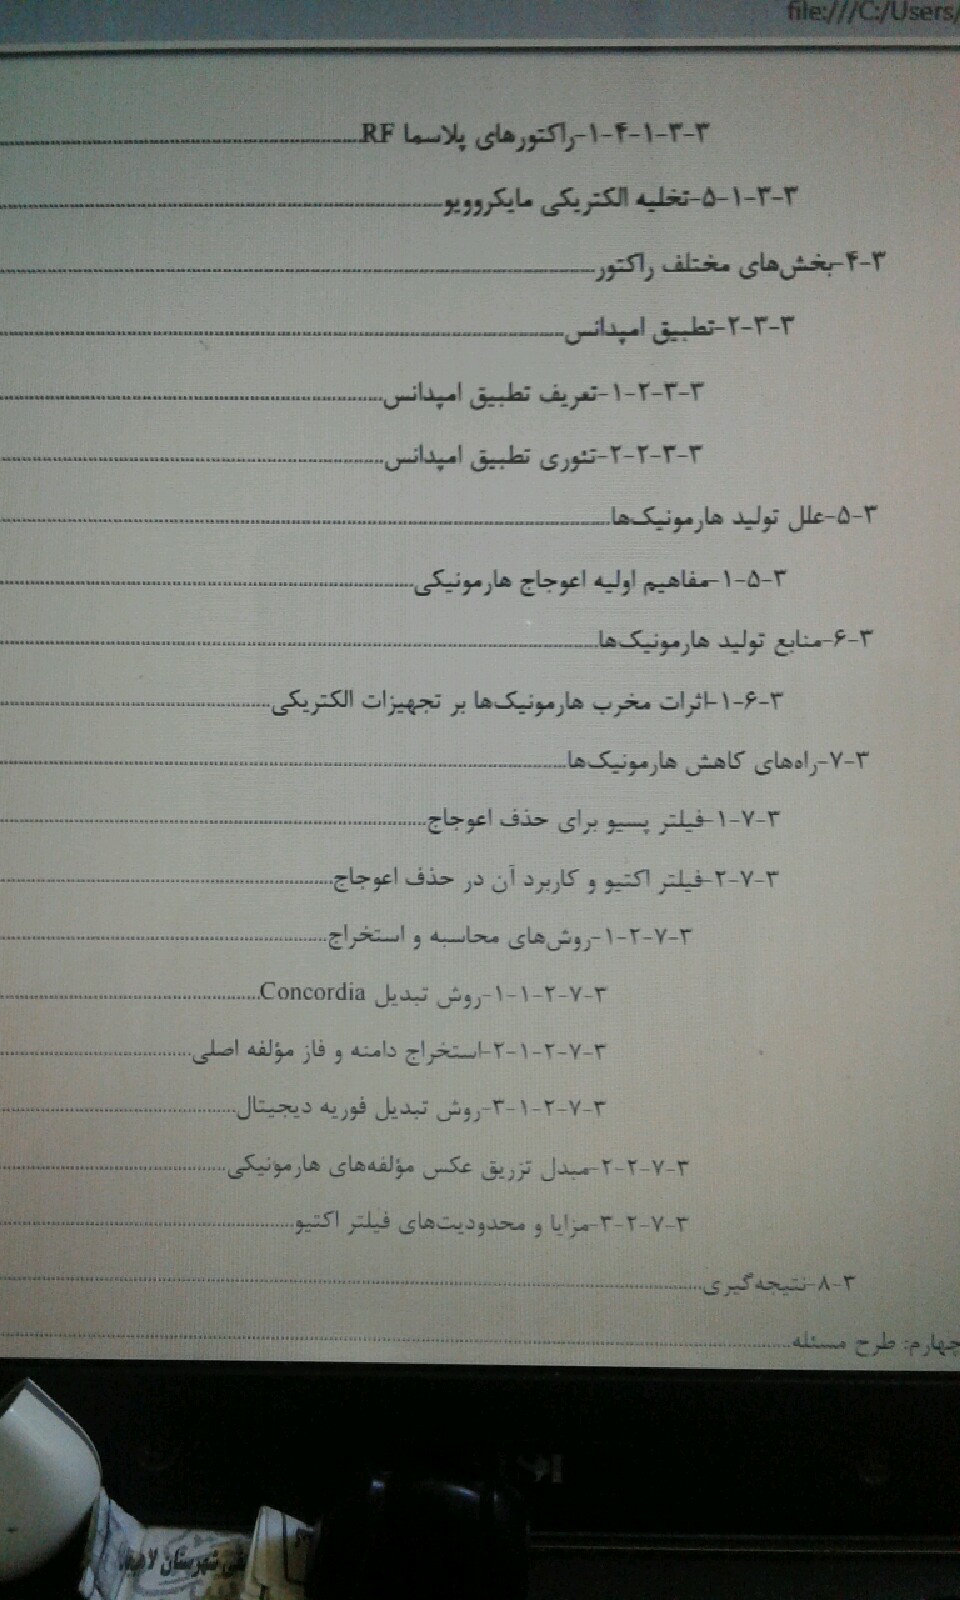 file:///C:/Users/
۳-۳-۱-۴-۱-راکتورهای پلاسما RF
۳-۳-۱-۵-تخلیه الکتریکی مایکروویو
۳-۴-بخش‌های مختلف راکتور
۳-۳-۲-تطبیق امپدانس
۳-۳-۲-۱-تعریف تطبیق امپدانس
۳-۳-۲-۲-تئوری تطبیق امپدانس
۳-۵-علل تولید هارمونیک‌ها
۳-۵-۱-مفاهیم اولیه اعوجاج هارمونیکی
۳-۶-منابع تولید هارمونیک‌ها
۳-۶-۱-اثرات مخرب هارمونیک‌ها بر تجهیزات الکتریکی
۳-۷-راه‌های کاهش هارمونیک‌ها
۳-۷-۱-فیلتر پسیو برای حذف اعوجاج
۳-۷-۲-فیلتر اکتیو و کاربرد آن در حذف اعوجاج
۳-۷-۲-۱-روش‌های محاسبه و استخراج
۳-۷-۲-۱-۱-روش تبدیل Concordia
۳-۷-۲-۱-۲-استخراج دامنه و فاز مؤلفه اصلی
۳-۷-۲-۱-۳-روش تبدیل فوریه دیجیتال
۳-۷-۲-۲-مبدل تزریق عکس مؤلفه‌های هارمونیکی
۳-۷-۲-۳-مزایا و محدودیت‌های فیلتر اکتیو
۳-۸-نتیجه‌گیری
چهارم: طرح مسئله
شهرستان